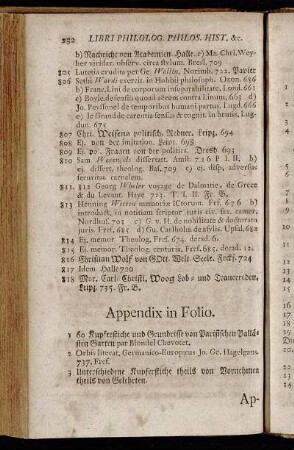 282 LIBRI PHILOLOG. PHILOS. HIST. &c.
b) Nachricht von Academien-Halle. c) Ma. Chri. Wey-
her viridar. observ. circa stylum. Bresl. 709
805 Lutetia erudita per Ge. Wallin. Norimb. 722. Papier
806 Sethi Wardi exercit. in Hobbii philosoph. Oxon. 656
b) Franc. Lini de corporum inseparabilitate. Lond. 661
c) Boyle defensio quoad aërem contra Linum. 669 d)
Jo. Persone de temporibus humani partus. Lugd. 666
e) le Grand de carentia sensus & cognit. in brutis, Lug-
dun. 675
807 Chri. Weisens politisch. Redner. Leipz. 694
808 Ej. von der imitation. Leipz. 698
809 Ej. po. Fragen von der politic. Dresd. 693
810 Sam. Werenfels dissertatt. Amst. 716 P I. II, b)
ej. dissert. theolog. Bas. 709 c) ej. disp. adversus
securitat. carnalem.
811. 812 Georg Wheler voyage de Dalmatie, de Grece
& du Levant. Haye 723. T. I. II. Fr. B.
813 Henning Witten memoriæ ICtorum. Frf. 676 b)
introduct. in notitiam scriptor.
Nordhus. 705 c) G. v. H. de nobilitate & doctorum
juris. Frf. 685 d) Gu. Carlholm de asylis. Upsal. 682
814 Ej. memor. Theolog. Frf. 674. decad. 6.
815 Ej. memor. Theolog. centuria, Frf. 685. decad. 12.
816 Christian Wolf von GOtt. Welt. Seele. Frckf. 724
817 Idem. Halle 720
818 Mor. Carl. Christi. Woog Lob- und Trauerreden.
Leipz. 735. Fr. B.
Appendix in Folio.
1 60 Kupferstiche und Grundrisse von Parisischen Pallä-
sten Garten par Blondel Chevotet.
2 Orbis literat. Germanico-Europæus Jo. Ge. Hagelgans.
737. Fref.
3 Unterschiedene Kupferstiche theils von Vornehmen
theils von Gelehrten.
Ap-